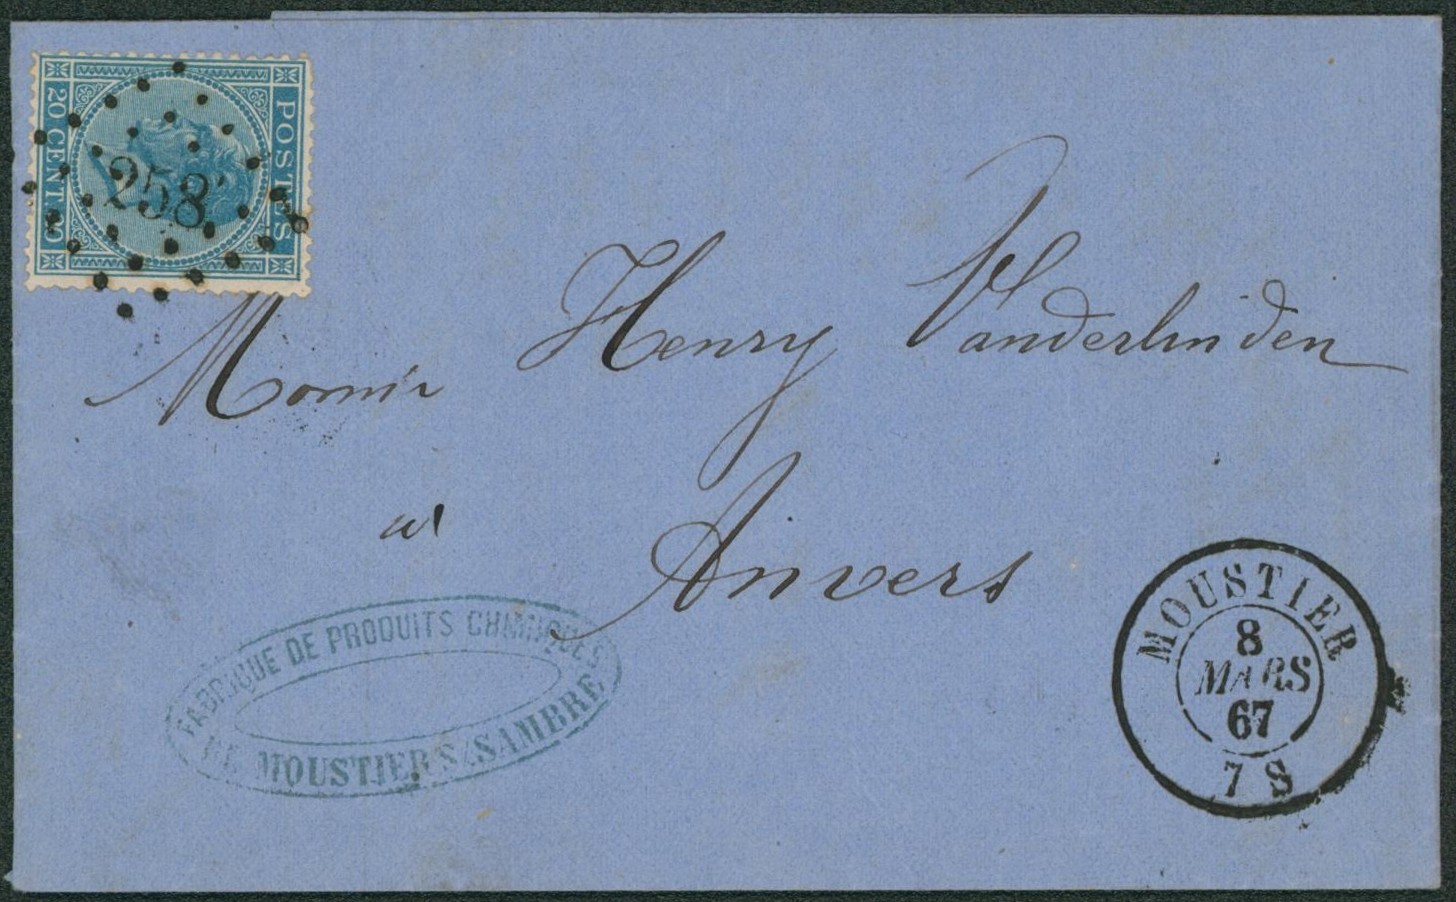 POSTES
20 CENTIMES
258
Monsir Henry Vanderlinden
à
Anvers
FABRIQUE DE PRODUITS CHIMIQUES
DE MOUSTIER S/SAMBRE
MOUSTIER
8
MARS
67
7 S